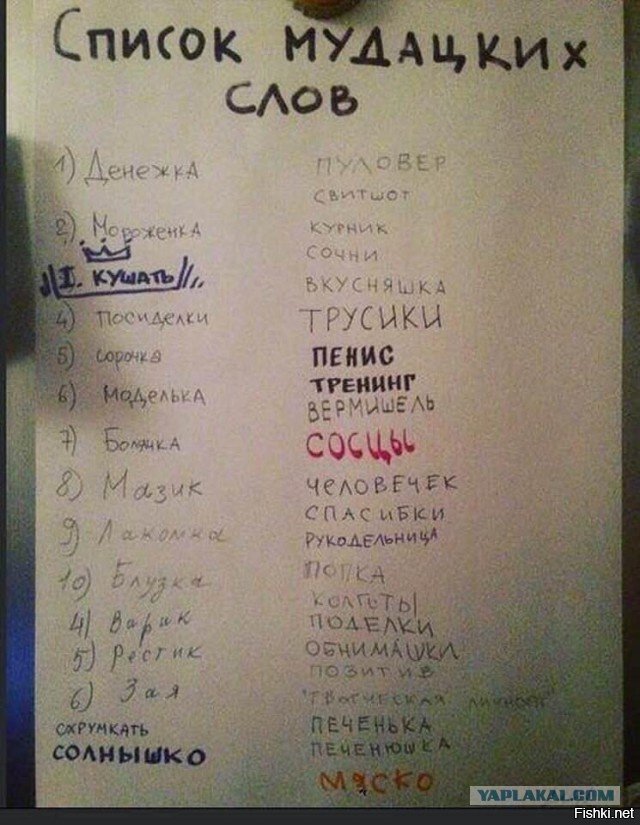 Список мудацких
слов
1) Денежка
2) Мороженка
I. кушать
4) Посиделки
5) Сорочка
6) Моделька
7) Болячка
8) Мазик
9) Лакомка
10) Блузка
4) Варик
5) Рестик
6) Зая
схрумкать
солнышко
пуловер
свитшот
курник
сочни
вкусняшка
трусики
пенис
тренинг
вермишель
сосцы
человечек
спасибки
рукодельница
попка
колготы
поделки
обнимашки
позитив
"творческая личность"
печенька
печенюшка
мяско
YAPLAKAL.COM
Fishki.net